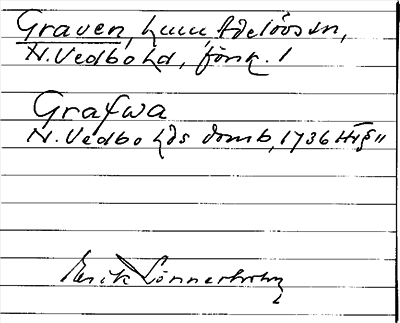 Graven, hmn, Adelövs sn,
N. Vedbo hd, försk. 1
Grafwa
N. Vedbo hds domb, 1736 HT § 11
Erik Lönnerholm